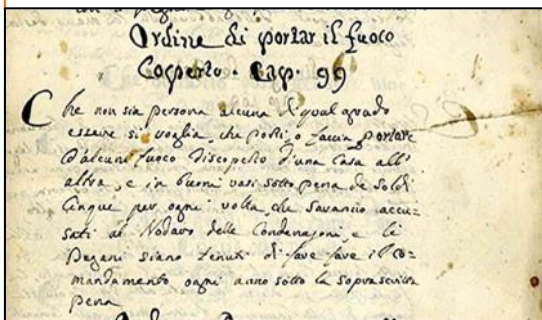 Ordine di portar il fuoco
Coperto. Cap. 99
Che non sia persona alcuna di qual grado
essere si voglia, che porti, o faccia portare
d'alcun fuoco discoperto d'una Casa all'
altra, e in buoni vasi sotto pena de soldi
Cinque per ogni volta, che saranno accu=
sati al Nodaro delle Condenagioni, e li
Degani siano tenuti di fare fare il co=
mandamento ogni anno sotto la soprascritta
pena